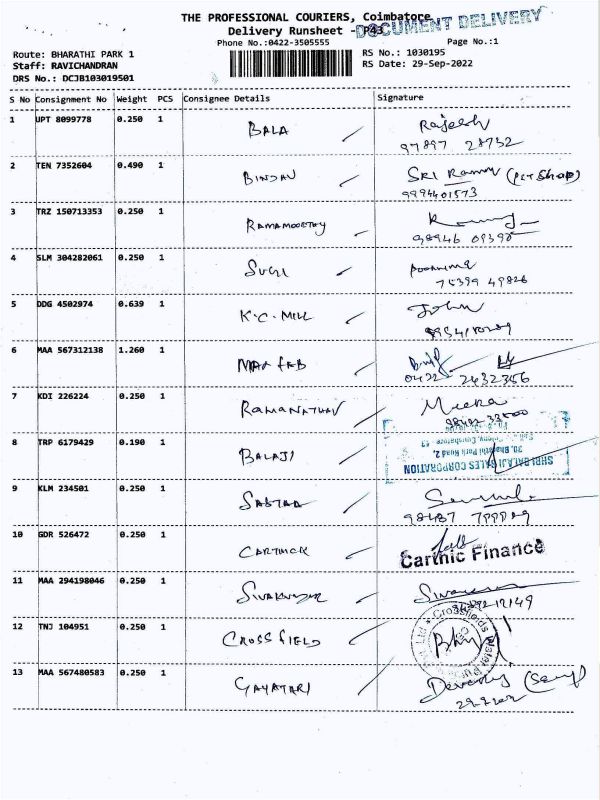 THE PROFESSIONAL COURIERS, Coimbatore
DOCUMENT DELIVERY
Delivery Runsheet - P43
Phone No.:0422-3505555 Page No.:1
Route: BHARATHI PARK 1 RS No.: 1030195
Staff: RAVICHANDRAN RS Date: 29-Sep-2022
DRS No.: DCJB103019501
S No Consignment No Weight PCS Consignee Details Signature
1 UPT 8099778 0.250 1 BALA Rajesh
97897 28732
2 TEN 7352604 0.490 1 BINDAV SRI Ramu (Pet Shop)
9994401573
3 TRZ 150713353 0.250 1 RAMAMOORTHY
98946 09390
4 SLM 304282061 0.250 1 SUGI Poornima
75399 49826
5 DDG 4502974 0.639 1 K.C. MILL John
6 MAA 567312138 1.260 1 MAX FAB
0422 2432356
7 KDI 226224 0.250 1 RAMANATHAN Meera
98422 33500
8 TRP 6179429 0.190 1 BALAJI
SHRI BALAJI SALES CORPORATION
20, Bharathi Park Road 2,
Colony, Coimbatore
9 KLM 234501 0.250 1 SASTAA
98437
10 GDR 526472 0.250 1 CARTHICK Carthic Finance
11 MAA 294198046 0.250 1 SIVAKUMAR
12 TNJ 104951 0.250 1 CROSSFIELD
Crossfields Water
13 MAA 567480583 0.250 1 GAYATARI